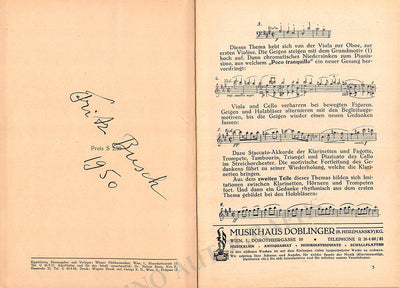 Fritz Busch
1950
Preis S
3.
Viola
Dieses Thema hebt sich von der Viola zur Oboe, zur
ersten Violine. Die Geigen steigen mit dem Grundmotiv (1)
hoch auf. Dann chromatisches Niedersinken zum Pianis-
simo, aus welchem „Poco tranquillo" ein neuer Gesang her-
vordringt:
Viola und Cello verharren bei bewegten Figuren,
Geigen und Holzbläser alternieren mit den Begleitungs-
motiven, bis die Geigen wieder einen neuen Gedanken
fassen:
Dazu Staccato-Akkorde der Klarinetten und Fagotte,
Trompete, Tambourin, Triangel und Pizzicato des Cello
im Streichorchester. Die motivische Verbreitung des Ge-
sanges führt zurück zu seiner Wiederholung, welche die Kla-
rinette bringt.
Aus dem zweiten Teile dieses Themas bilden sich Imi-
tationen zwischen Klarinetten, Hörnern und Trompeten
fort. Und dann ein Gedanke rhythmisch aus dem ersten
Thema gebildet bei den Holzbläsern:
MUSIKHAUS DOBLINGER (B. HERZMANSKY) KG.
WIEN, I. DOROTHEERGASSE 10 • TELEPHON R 26-4-80/81
MUSIKALIEN - ANTIQUARIAT - MUSIKINSTRUMENTE - SCHALLPLATTEN
5